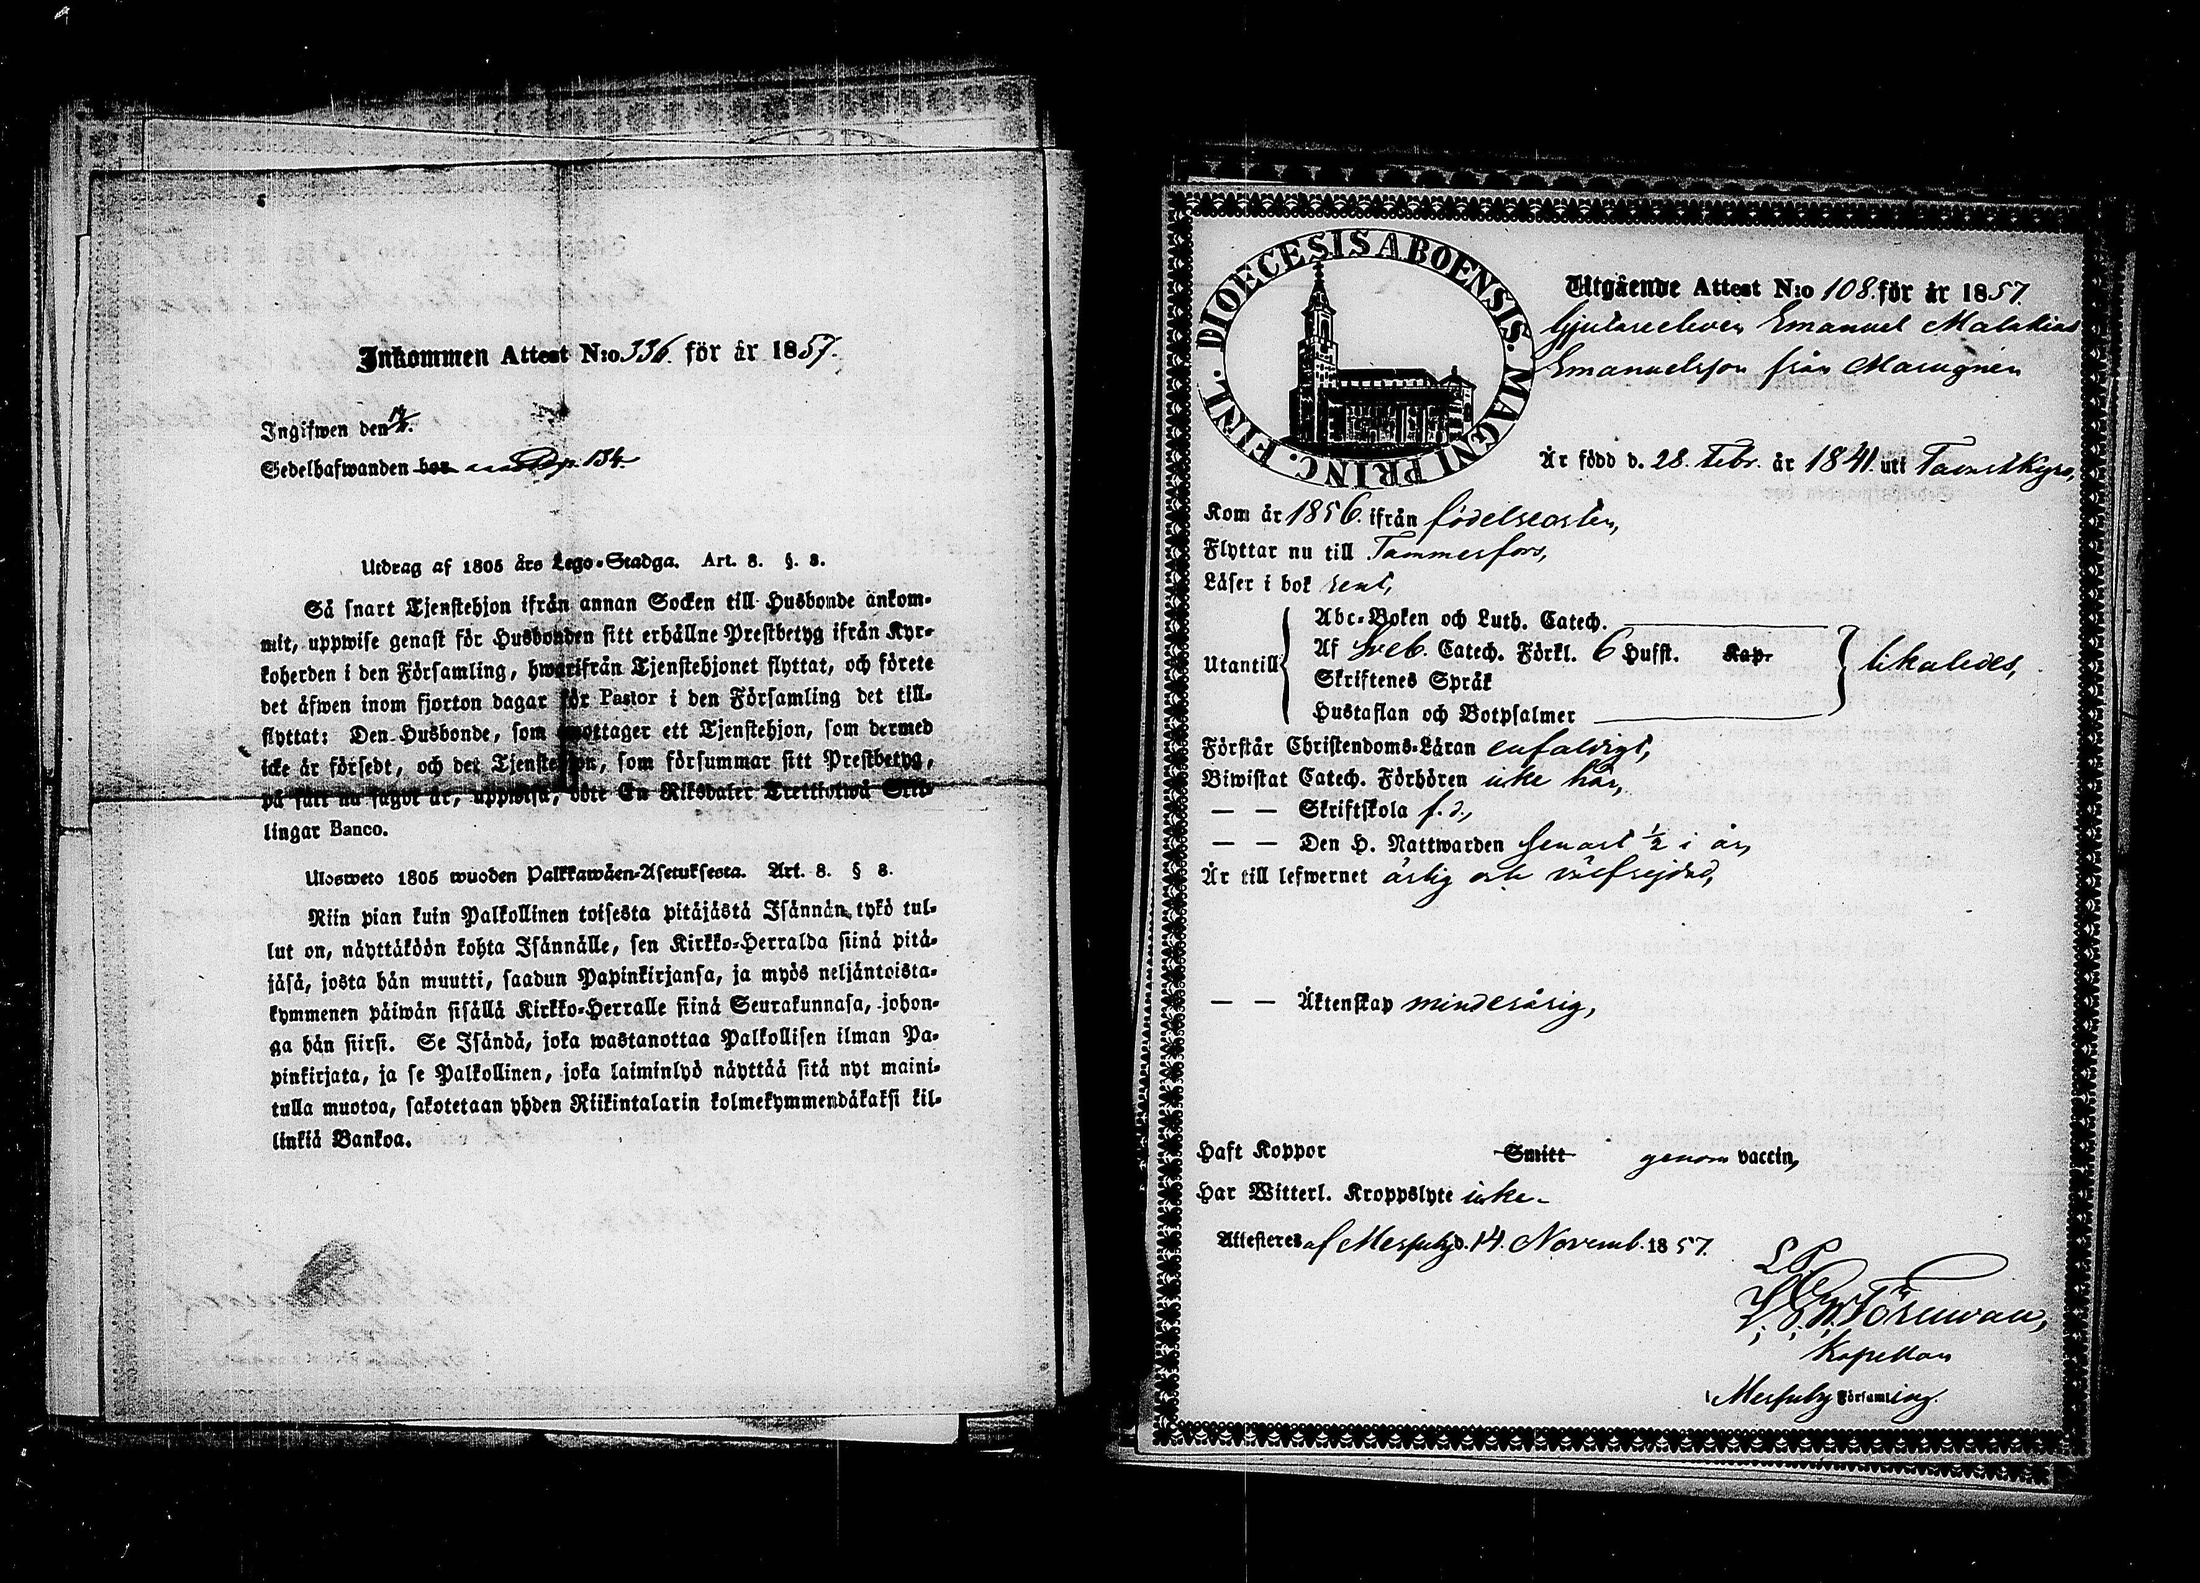 Inkommen Attest N:o 336. för år 1857.
Ingifwen den
Sedelhafwanden bor pag. 134.
Utdrag af 1805 års Lego-Stadga. Art. 8. §. 8.
Så snart Tjenstehjon ifrån annan Socken till Husbonde ankom-
mit, uppwise genast för Husbonden sitt erhållne Prestbetyg ifrån Kyr-
koherden i den Församling, hwarifrån Tjenstehjonet flyttat, och förete
det äfwen inom fjorton dagar för Pastor i den Församling det till-
flyttat: Den Husbonde, som emottager ett Tjenstehjon, som dermed
icke är försedt, och det Tjenstehjon, som försummar sitt Prestbetyg,
på sätt nu sagdt är, uppwisa, böte En Riksdaler Trettiotwå Skil-
lingar Banco.
Ulosweto 1805 wuoden Palkkawäen-Asetuksesta. Art. 8. § 8.
Niin pian kuin Palkollinen toisesta pitäjästä Isännän tykö tul-
lut on, näyttäköön kohta Isännälle, sen Kirkko-Herralda siinä pitä-
jäsä, josta hän muutti, saadun Papinkirjansa, ja myös neljäntoista-
kymmenen päiwän sisällä Kirkko-Herralle siinä Seurakunnasa, johon-
ga hän siirsi. Se Isändä, joka wastanottaa Palkollisen ilman Pa-
pinkirjata, ja se Palkollinen, joka laiminlyö näyttää sitä nyt maini-
tulla muotoa, sakotetaan yhden Riikintalarin kolmekymmendäkaksi kil-
linkiä Bankoa.
DIOECESIS ABOENSIS. MAGNI PRINC. FINL.
Utgående Attest N:o 108. för år 1857.
Gjutareeleven Emanuel Malakias
Emanuelsson från
Är född d. 28. Febr. år 1841. uti Tavastkyro,
Kom år 1856. ifrån födelseorten,
Flyttar nu till Tammerfors,
Läser i bok rent,
Utantill
Abc-Boken och Luth. Catech.
Af Sveb. Catech. Förkl. 6 Hufst. Kap.
Skriftenes Språk
Hustaflan och Botpsalmer
likaledes,
Förstår Christendoms-Läran enfaldigt,
Biwistat Catech. Förhören icke här,
— — Skriftskola f. d.,
— — Den H. Nattwarden senast ½ i år,
Är till lefwernet ärlig och välfrejdad,
— — Äktenskap minderårig,
Haft Koppor Smitt genom vaccin,
Har Witterl. Kroppslyte icke.
Attesteres af Messuby d. 14. Novemb. 1857.
L P
Kapellan
i Messuby Församling.